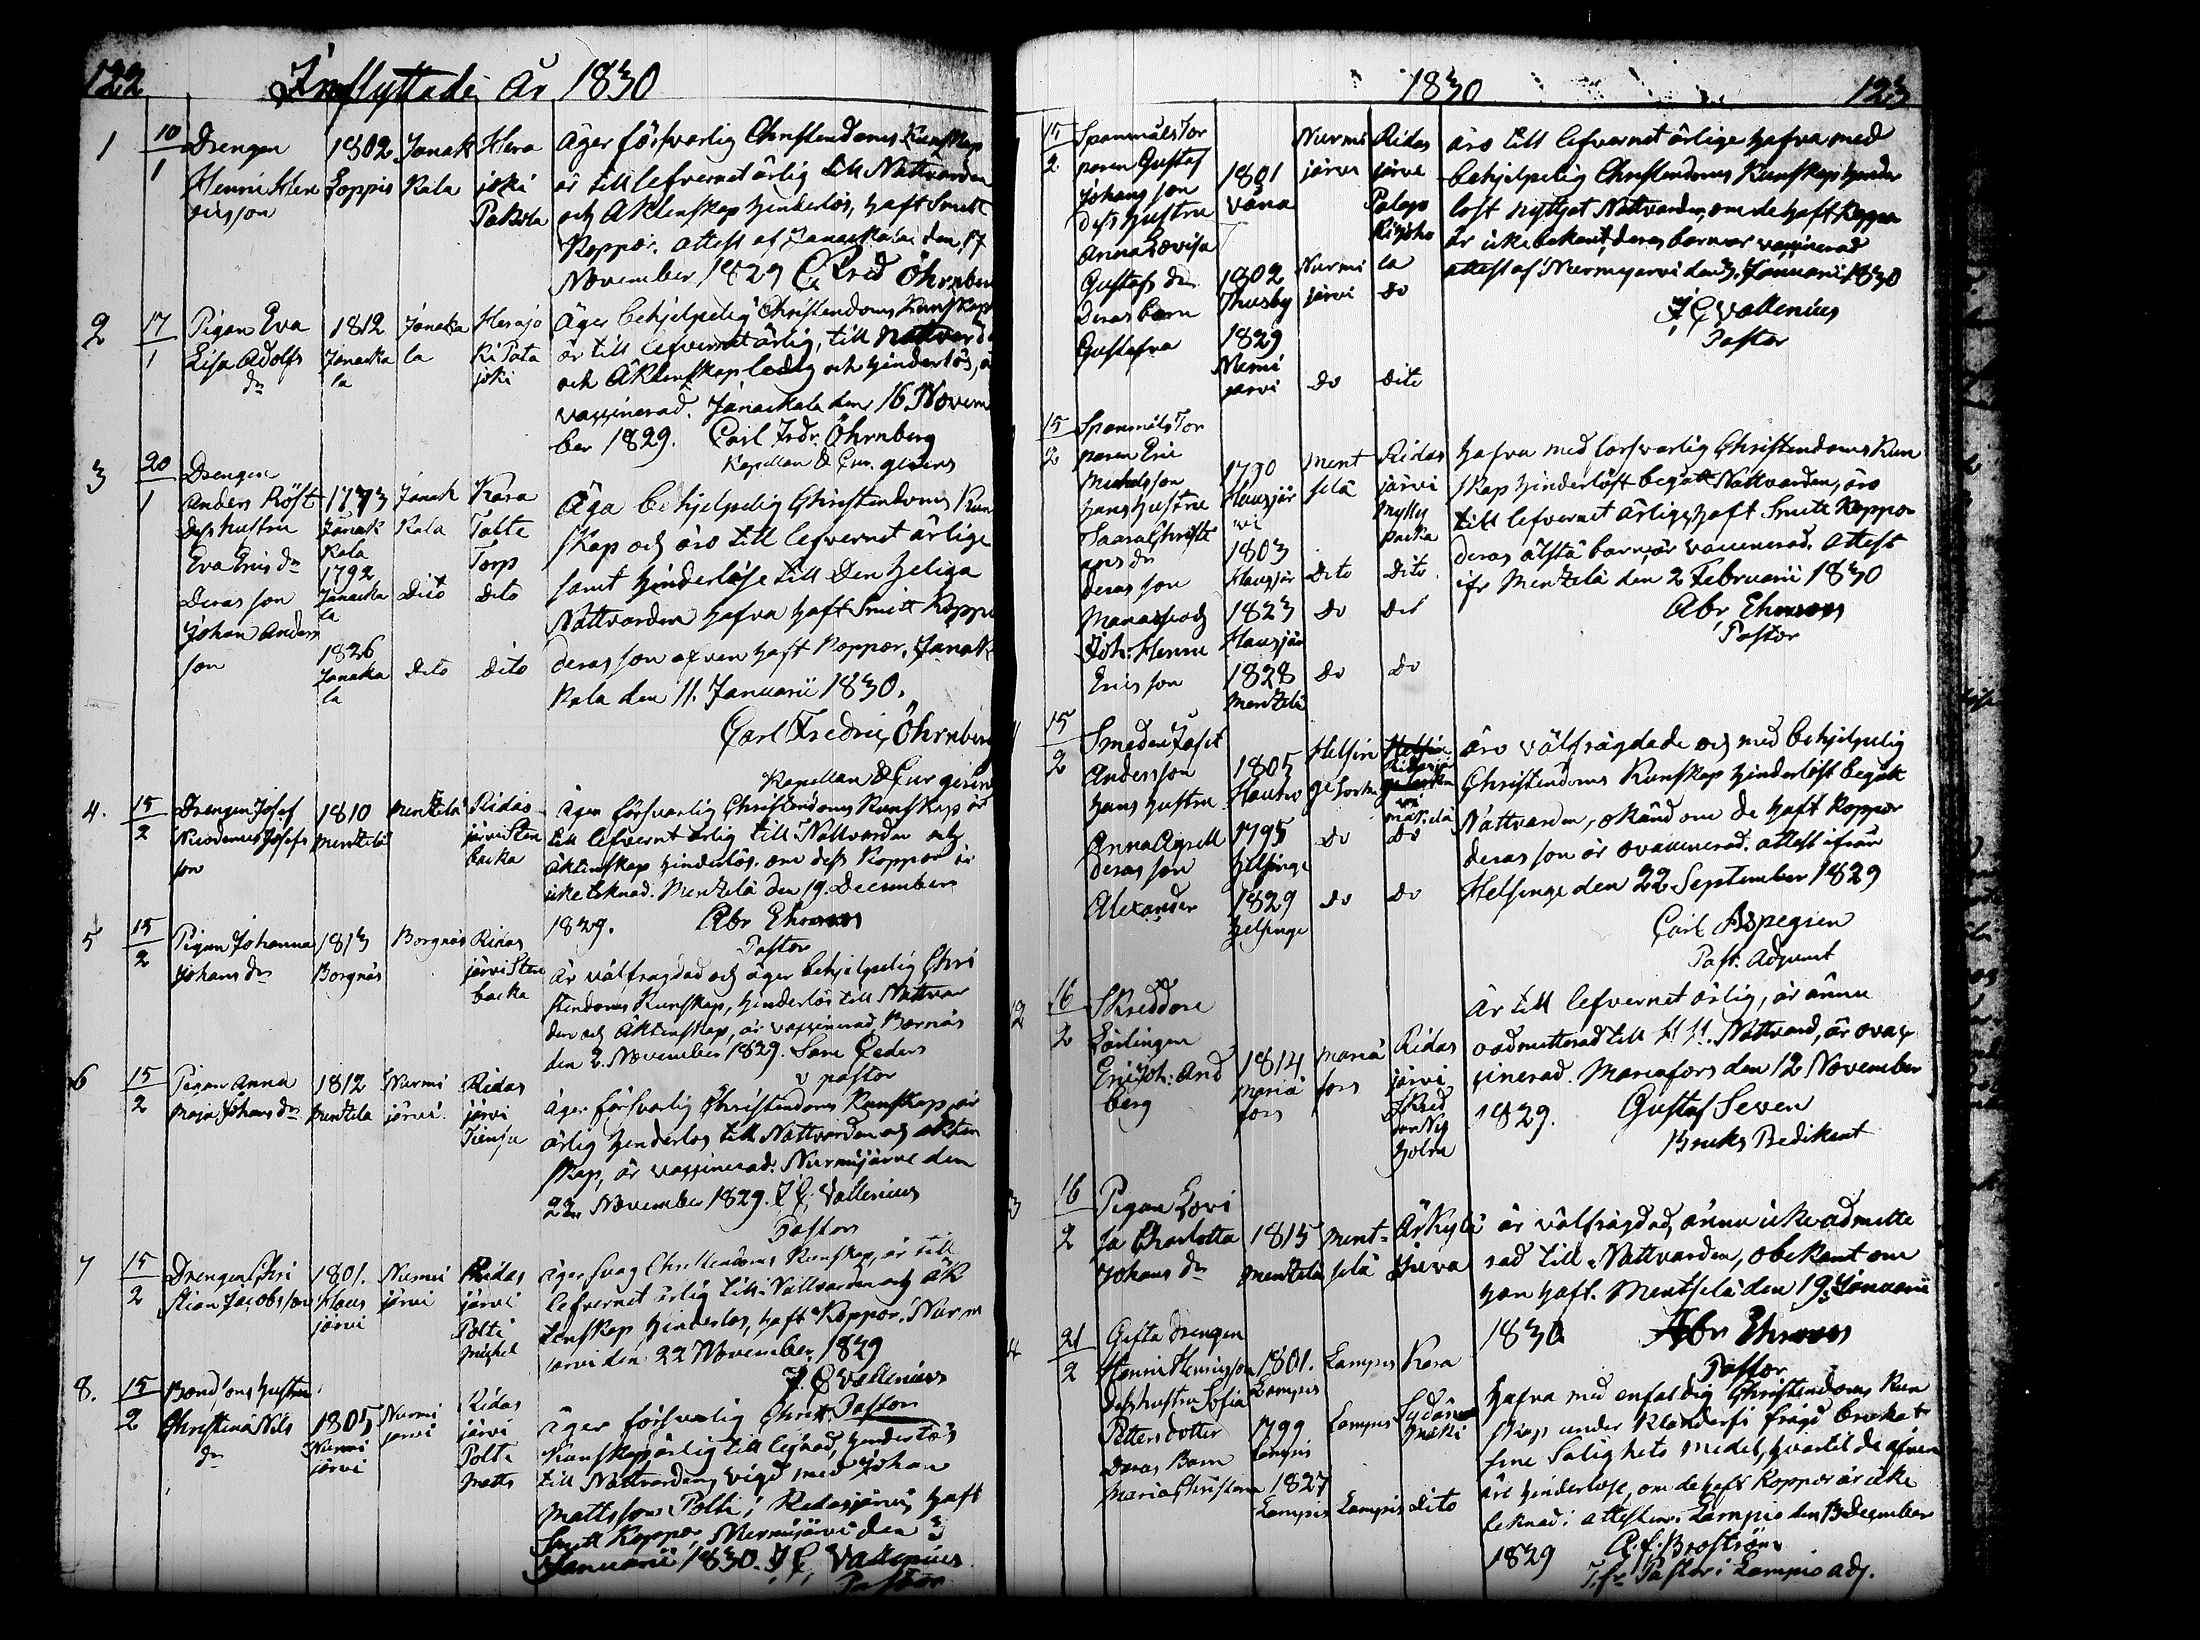 122
Inflyttade År 1830
1
10/1
Drengen
Henric Hen
ricsson
1802
Loppis
Janak
kala
Hera
joki
Pakola
Äger försvarlig Christendoms Kunskap
är till lefvernet ärlig till Nattvarden
och Äktenskap hinderlös, haft Smitt
Koppor. attest af Janackala den 17
November 1829 C Frid Öhrnberg
2
17/1
Pigan Eva
Lisa Adolfs
dr
1812
Janacka
la
Janaka
la
Herajo
ki Pata
joki
Äger behjelpelig Christendoms Kunskap
är till lefvernet ärlig, till Nattvarden
och Äktenskap ledig och hinderlös, är
vaccinerad. Janackala den 16 Novem
ber 1829. Carl Frdr. Öhrnberg
Kapellan & Cur. gerens
3
20/1
Drengen
Anders Röst
dess hustru
Eva Erics dr
Deras son
Johan Anders
son
1773
Janak
kala
1792
Janacka
la
1826
Janaka
la
Janak
kala
Dito
dito
Kara
Talte
Torp
dito
dito
Äga behjelpelig Christendoms Kun
skap och äro till lefvernet ärlige
samt hinderlöse till Den heliga
Nattvarden hafva haft Smitt Koppor
deras son äfven haft Koppor. Janak
kala den 11. Januarii 1830.
Carl Fredric Öhrnberg
Kapellan & Cur gerens
4.
15/2
Drengen Josef
Nicodemus Josefs
son
1810
Mentzelä
Mentzelä
Ridas
järvi Sten
backa
äger försvarlig Christendoms Kunskap är
till lefvernet ärlig till Nattvarden och
äktenskap hinderlös. om dess Koppor är
icke teknad. Mentzelä den 19 December
1829. Abr Ehrnroos
Pastor
5
15/2
Pigan Johanna
Johans dr
1813
Borgnäs
Borgnäs
Ridas
järvi Sten
backa
är välfragdad och äger behjelpelig Chri
stendoms Kunskap, hinderlös till Nattvar
den och Äktenskap, är vaccinerad. Bornäs
den 2. November 1829. Sam Ceder
v pastor
6
15/2
Pigan Anna
Maja Johans dr
1812
Mentzela
Nurmi
järvi
Ridas
järvi
äger försvarlig Christendoms Kunskap, är
ärlig hinderlös till Nattvarden och äkten
skap, är vaccinerad. Nurmijärve den
22 November 1829. J C Vallenius
Pastor
7
15/2
Drengen Chri
stian Jacobsson
1801.
Haus
järvi
Nurmi
järvi
Ridas
järvi
Polti
Michel
äger svag Christendoms Kunskap, är till
lefvernet ärlig till Nattvarden och äk
tenskap hinderlös, haft Koppor. Nurm
jarvi den 22 November 1829
J. C Vallenius
Pastor
8.
15/2
Bond'ons hustru
Christina Nils
dr
1805
Nurmi
järvi
Nurmi
jarvi
Ridas
järvi
Polte
Matts
äger försvarlig Christ.
Kunskap, ärlig till lefnad, hinderlös
till Nattvarden, vigd med Johan
Mattsson Polti i Ridasjärvi, haft
Smitt Koppor, Nurmijärvi den 3
Januarii 1830. J C, Vallenius
Pastor
1830
123
15/2
Spannmåls Tor
paren Gustaf
Johans son
dess hustru
Anna Lovisa
Gustafs dr
Deras barn
Gustafva
1801
Våna
1802
Thusby
1829
Nurmi
jarvi
Nurmi
järvi
Nurmi
järvi
do
Ridas
järve
Palopo
la
do
dito
äro till lefvernet ärlige hafva med
behjelpelig Christendoms Kunskap hinder
löst nyttjat Nattvarden, om de haft Koppor
är icke bekant, deras barn är vaccinerad
attest af Nurmijarvi den 3. Januarii 1830
J C Vallenius
Pastor
15/2
Spanmåls Tor
paren Eric
Michelsson
Hans hustru
Saara Christi
ans dr
deras son
Manasse och
Joh: Henric
Erics son
1790
Hausjär
vi
1803
Hausjär
1823
Hausjär
1828
Mentzelä
Ment
selä
dito
do
do
Ridas
järvi
Mylly
packa
dito
do
Hafva med försvarlig Christendoms Kun
skap hinderlöst begått Nattvarden, äro
till lefvernet ärlige, haft Smitt Koppor
deras älsta barn, är vaccinerad. Attest
ifr Mentzelä den 2 Februarii 1830
Abr Ehrnroos
Pastor
15/2
Smeden Josef
Andersson
Hans hustru
Anna Agrell
deras son
Alexander
1805
Hauho
1795
Helsinge
1829
Helsinge
Helsin
ge Sockn
do
do
do
do
äro välfrägdade och med behjelpelig
Christendoms Kunskap hinderlöst begått
Nattvarden, okänd om de haft Koppor
deras son är ovaccinerad. attest ifrån
Helsinge den 22 September 1829
Carl Aspegren
Past. Adjunct
12
16/2
Skreddare
Lärlingen
Eric Joh: And
berg
1814
Mariä
fors
Mariä
fors
Ridas
järvi
Skred
dar Ny
holm
är till lefvernet ärlig, är ännu
oadmitterad till H. H. Nattvard, är ovac
cinerad. Mariefors den 12 November
1829. Gustaf Seven
Bruks Predikant
3
16/2
Pigan Lovi
sa Charlotta
Johans dr
1815
Mentzelä
Ment-
selä
är välfrägdad, ännu icke admitte
rad till Nattvarden, obekant om
hon haft. Mentselä den 19. Januarii
1830 Abr Ehrnroos
Pastor
4
21/2
Gifta drengen
Henric Henricsson
dess hustru Sofia
Petters dotter
Deras Barn
Maria Christina
1801.
Lampis
1799
Lampis
1827
Lampis
Lampis
Lampis
Lampis
Kara
Sydän
mäki
dito
Hafva med enfaldig Christendoms Kun
skap under Klanderfri frägd brukat
sine Salighets medel, hvartil de äfven
äro hinderlöse, om de haft Koppor är icke
teknad: attesteras Lampis den 13 December
1829 A. f. Broström
T.f. Pastor i Lampis adj.